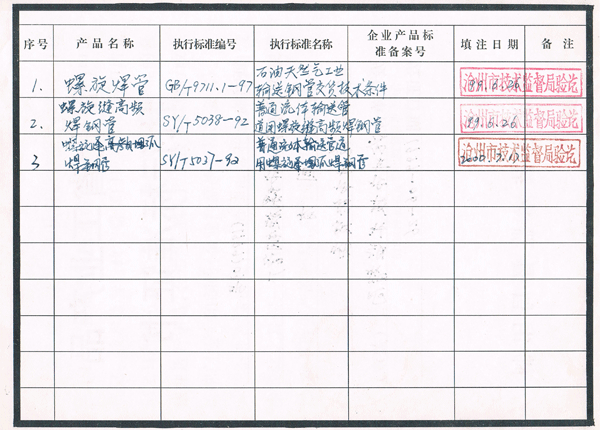 序号 产品名称 执行标准编号 执行标准名称 企业产品标准备案号 填注日期 备注
1. 螺旋焊管 GB/T9711.1-97 石油天然气工业
输送钢管交货技术条件
沧州市技术监督局验讫
2. 螺旋缝高频
焊钢管 SY/T5038-92 普通流体输送管
道用螺旋缝高频焊钢管
沧州市技术监督局验讫
3 螺旋缝
焊钢管 SY/T5037-92 普通流体输送管道
用螺旋缝埋弧焊钢管
沧州市技术监督局验讫